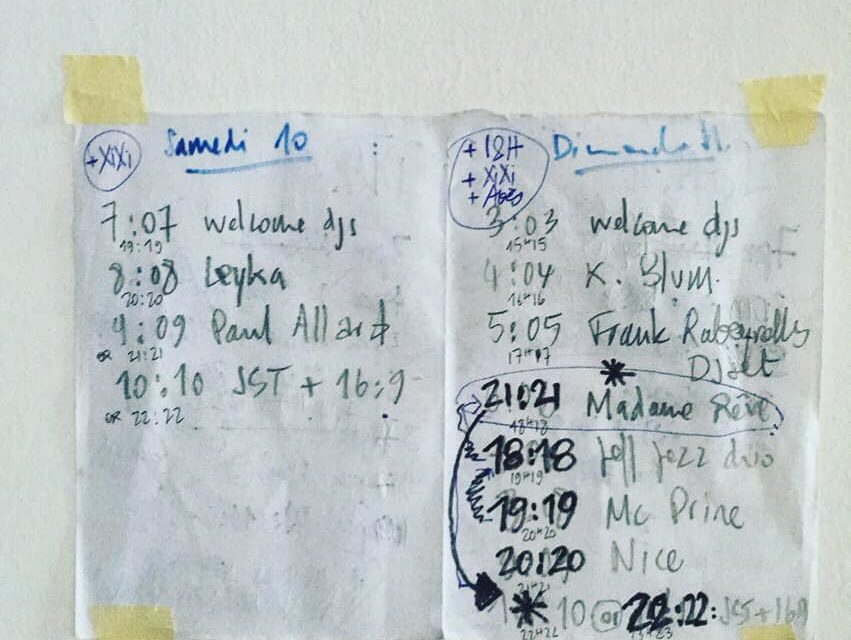 +XiXi
Samedi 10
7:07 welcome djs
19:19
8:08 Leyka
20:20
9:09 Paul Allard
OR 21:21
10:10 JST + 16:9
OR 22:22
+ 12H
+ XiXi
Dimanche 11
3:03 welcome djs
15H15
4:04 K. Blum.
16H16
5:05 Frank Rabeyrolles
17H17
DJ set
21:21 Madame Rêve
18H18
18:18 jazz duo
19H19
19:19 Mc Prine
20H20
20:20 Nice
21H21
10 or 22:22: JST + 169
22H22